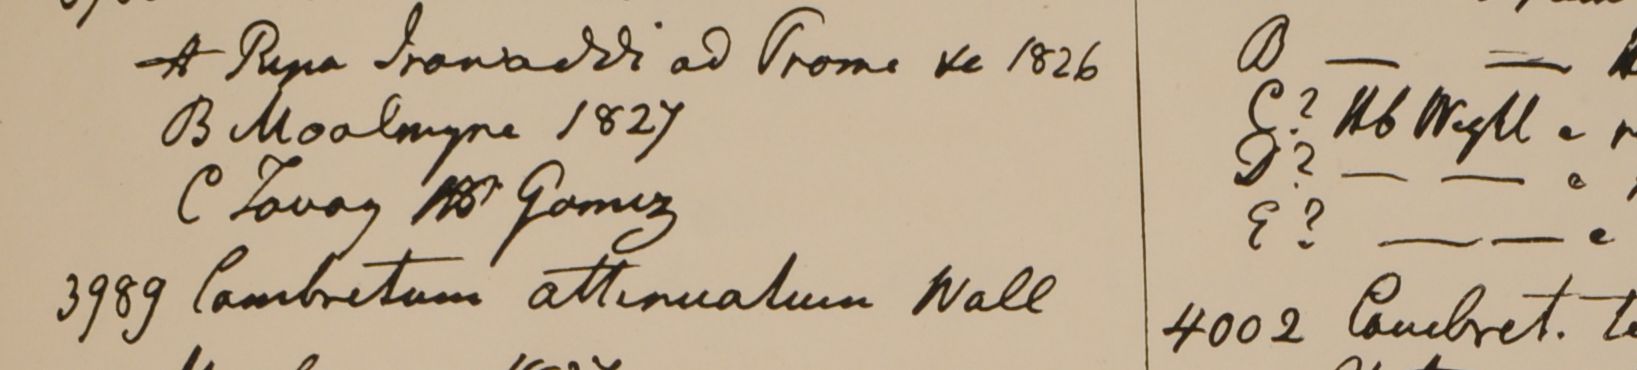 A Ripa Irawaddi ad Prome &c 1826
B Moalmyne 1827
C Tavoy Wr Gomez
3989 Combretum attenuatum Wall
B — =
C? Hb Wight e
D? — — e
E? — — e
4002 Combret.